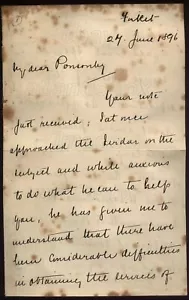 24 June 1896
My dear Ponsonby
Your note
just received; I at once
approached the Sirdar on the
subject and while anxious
to do what he can to help
you, he has given me to
understand that there have
been considerable difficulties
in obtaining the services of